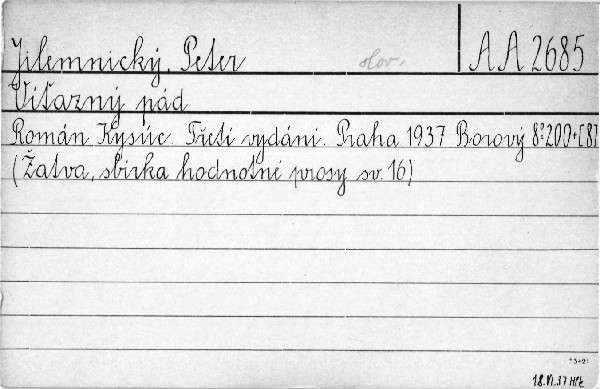 Jilemnický, Peter slov. AA 2685
Víťazný pád
Román Kysúc. Třetí vydání. Praha 1937 Borový 8° 200+[8]
(Žatva, sbírka hodnotné prosy sv. 16)
18.VI.37